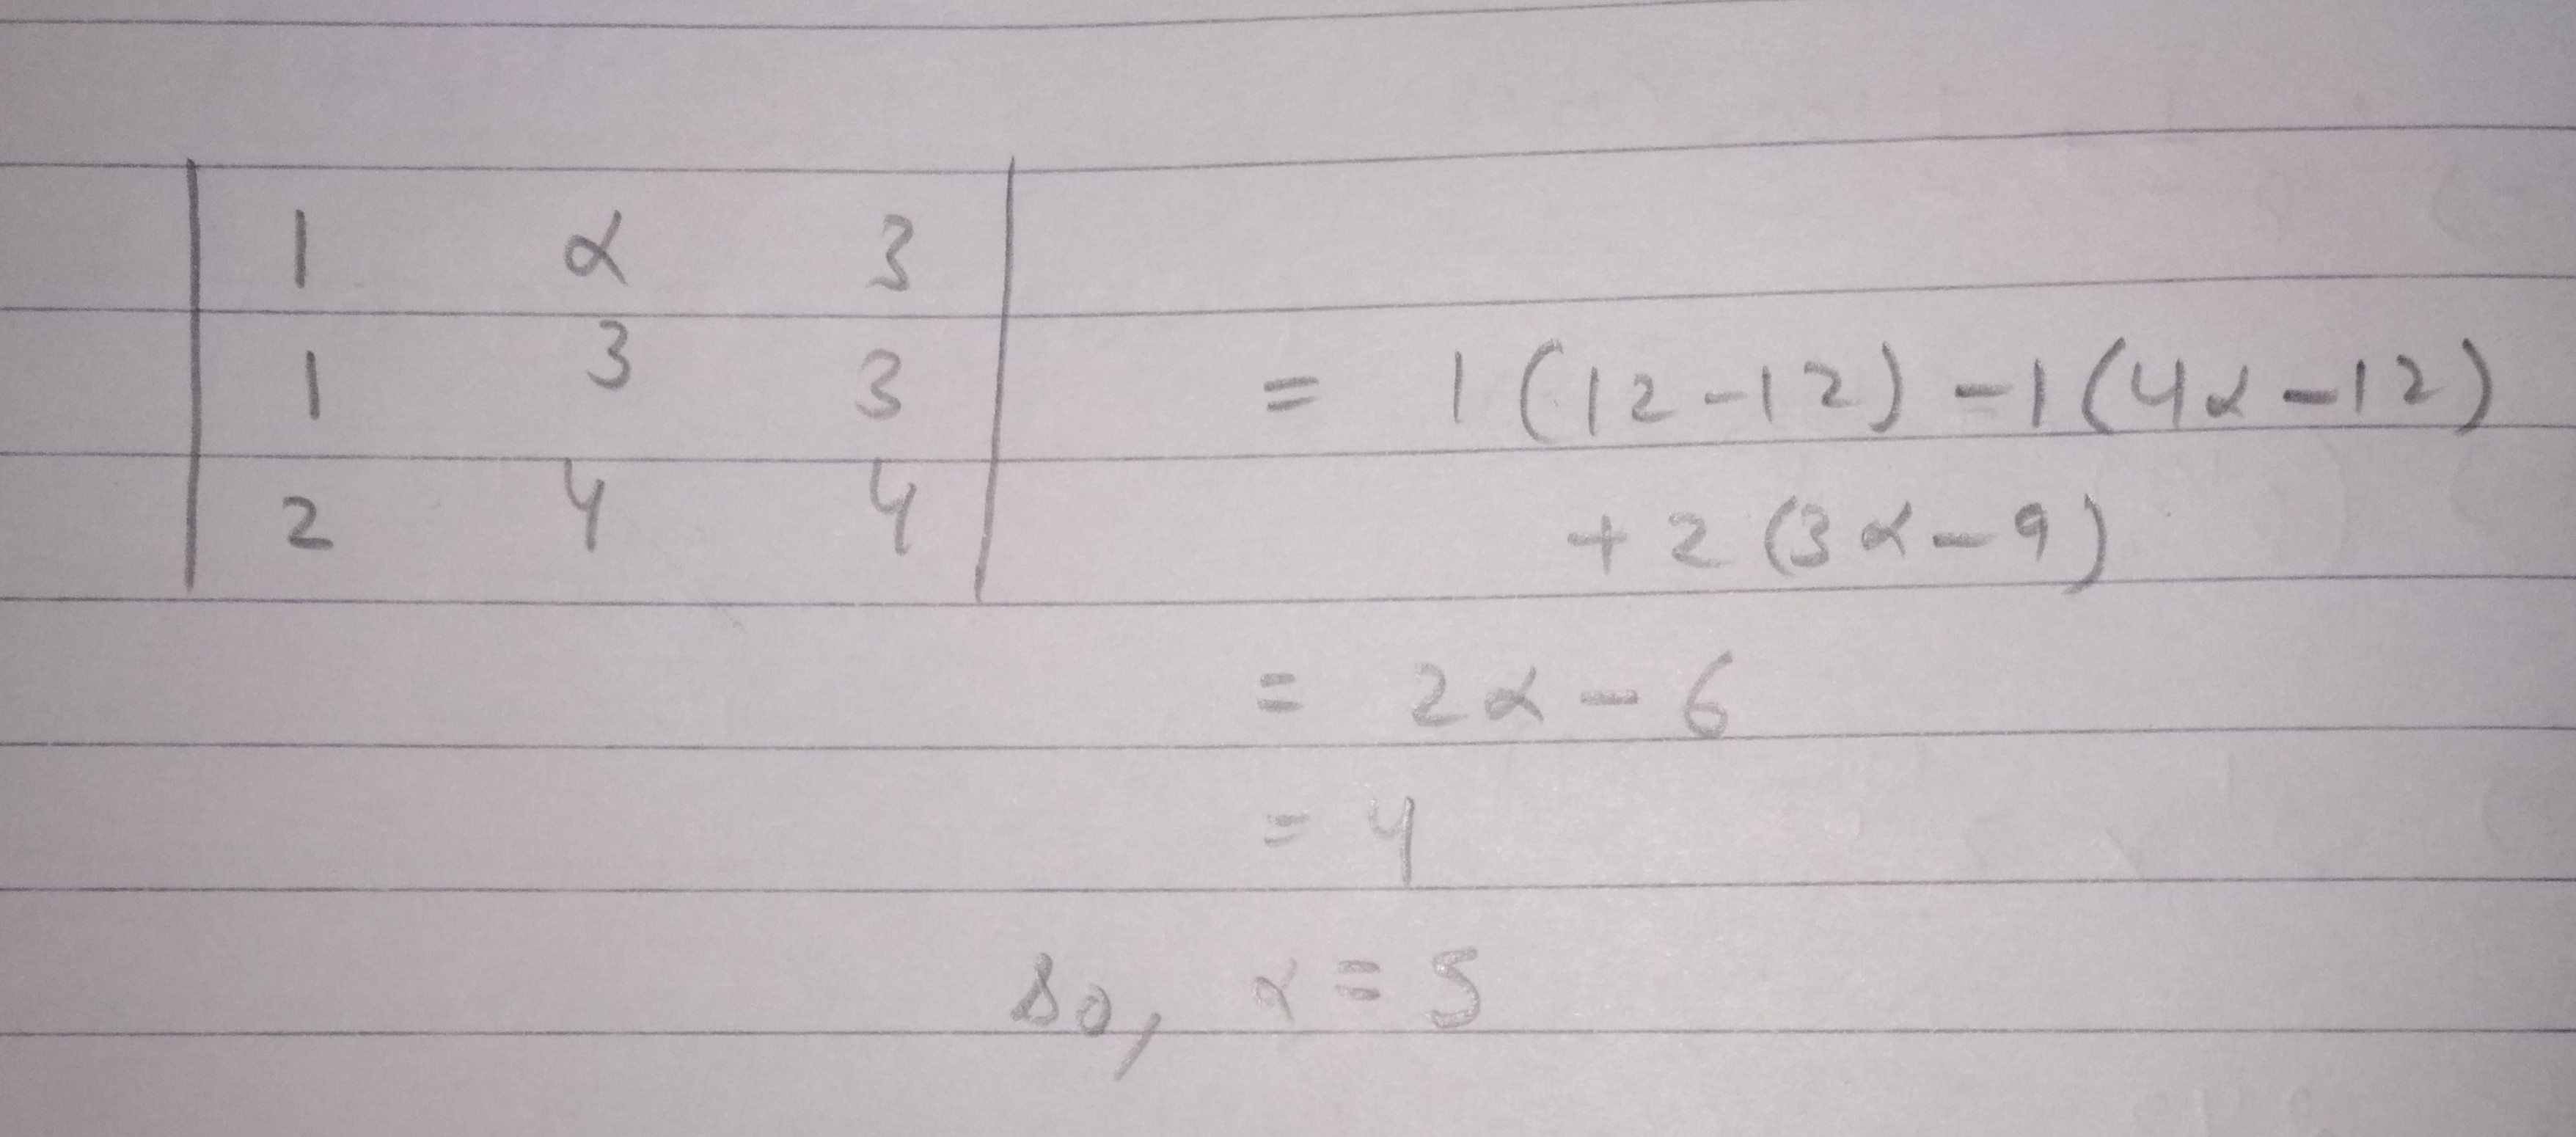 | 1 α 3 |
| 1 3 3 | = 1 (12 - 12) - 1 (4α - 12)
| 2 4 4 | + 2 (3α - 9)
= 2α - 6
= 4
So, α = 5